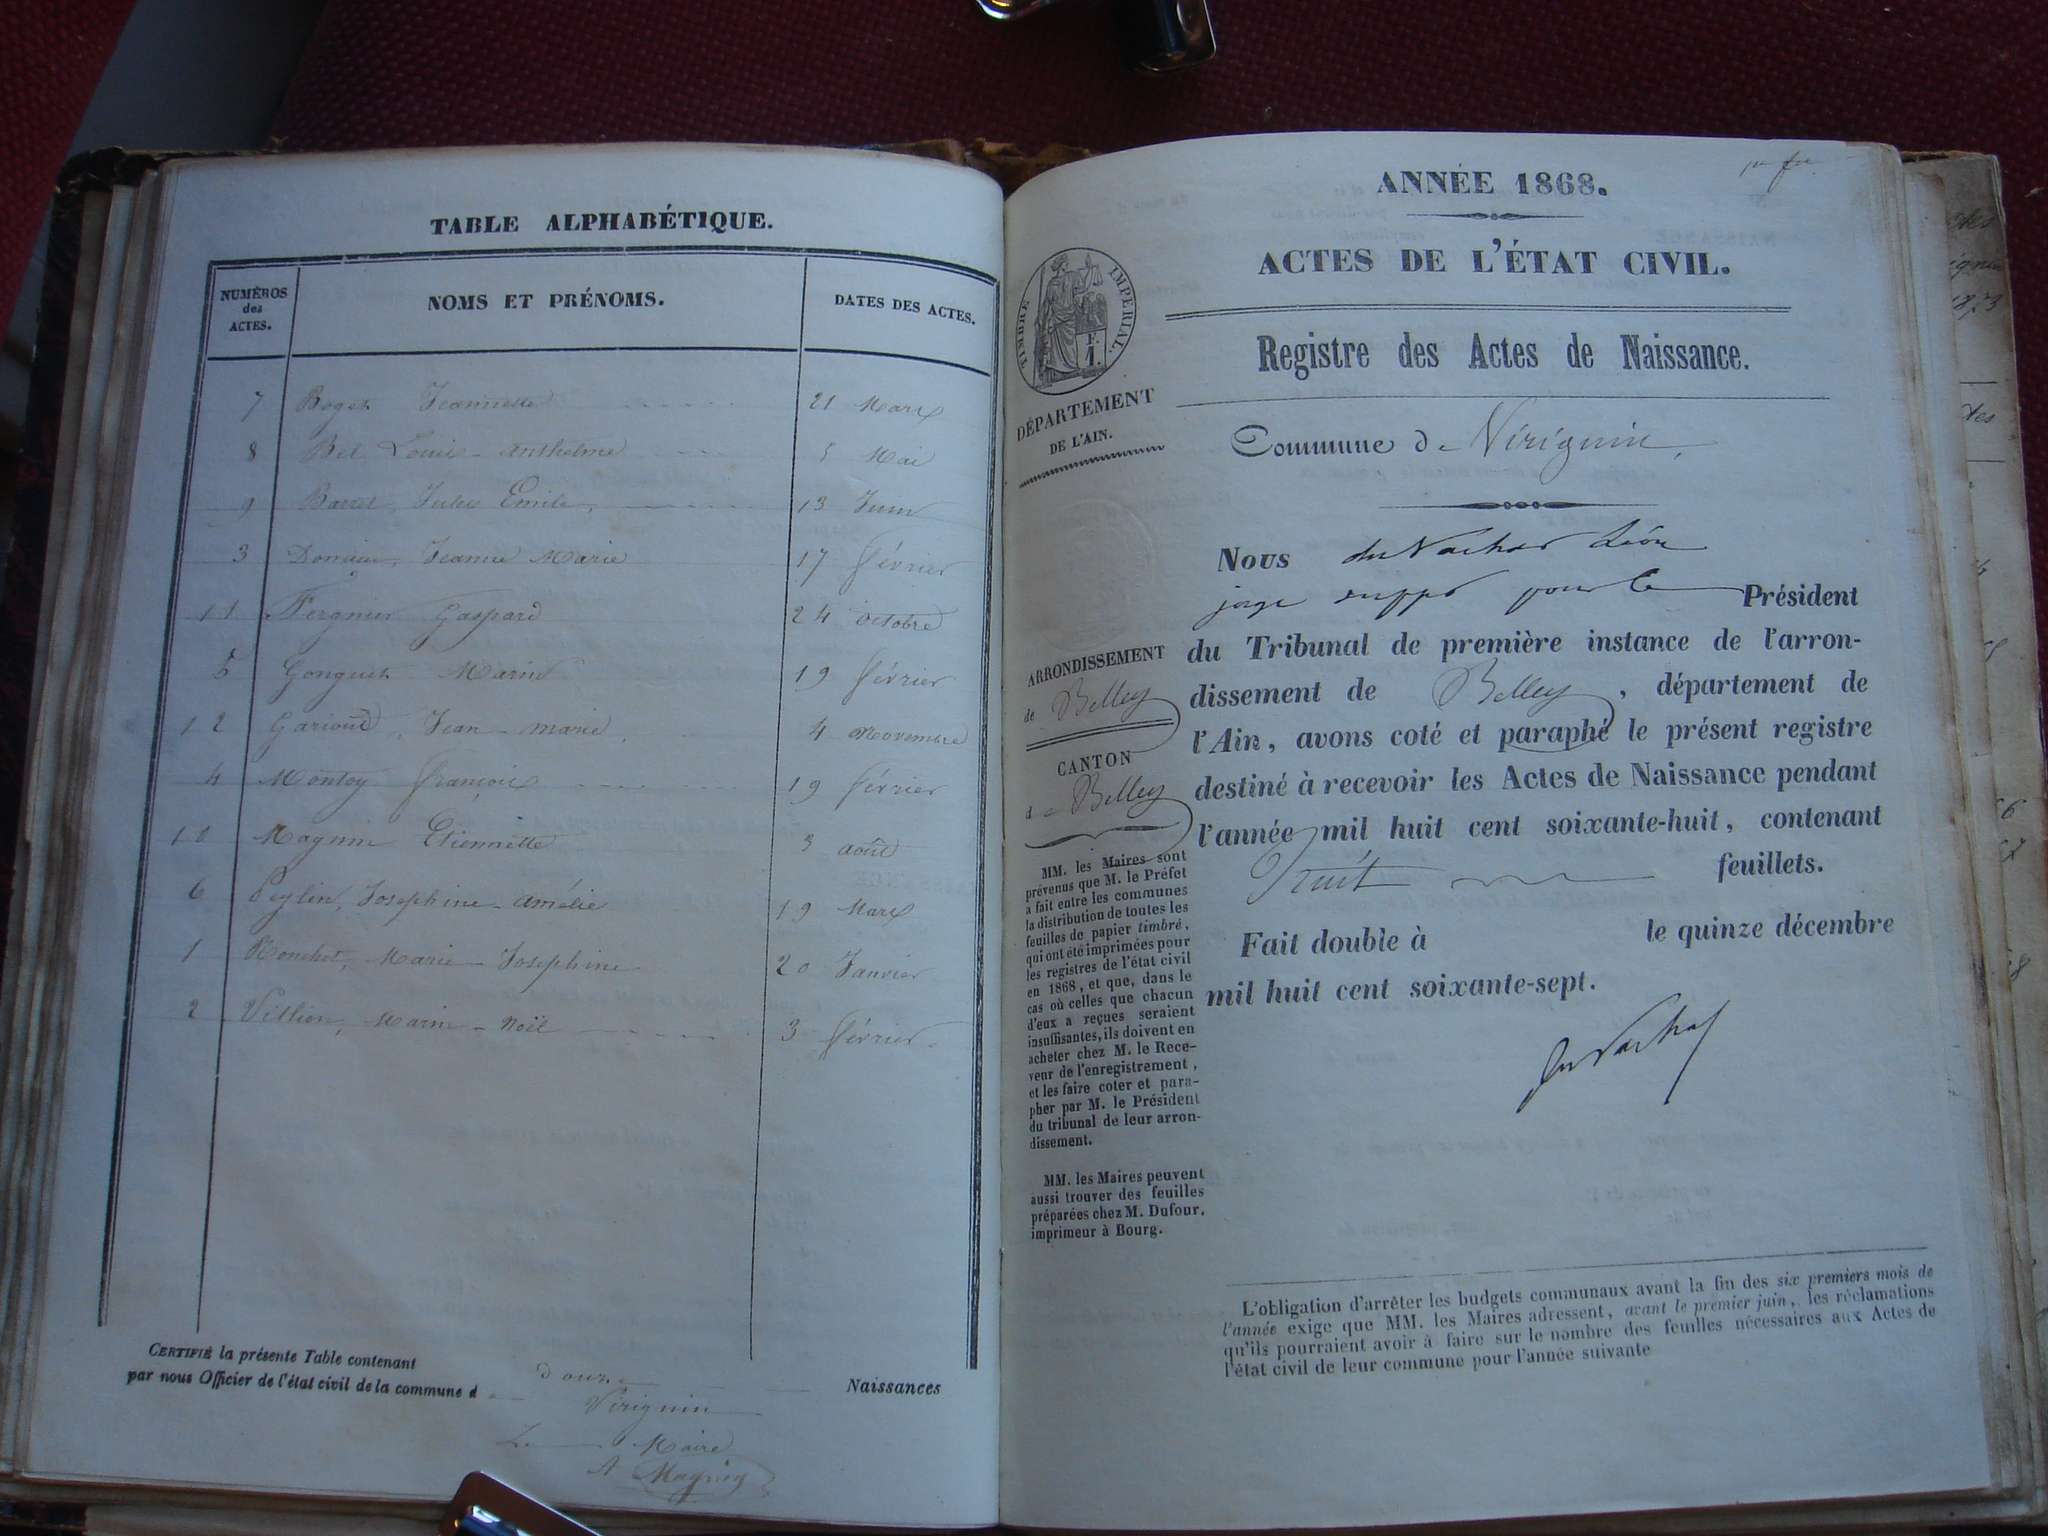 TABLE ALPHABÉTIQUE.
NUMÉROS
des
ACTES.
NOMS ET PRÉNOMS.
DATES DES ACTES.
7 Jeannette 21 Mars
8 Bel Louis-Anthelme 5 Mai
9 Barret, Jules Emile, 13 Juin
3 Jeanne Marie 17 février
11 Fergnier Gaspard 24 octobre
5 Marin 19 février
12 Jean-marie 4 Novembre
4 François 19 février
10 Magnin Etiennette 3 août
6 Peylin, Josephine-Amélie 19 Mars
1 Ronchet, Marie-Josephine 20 Janvier
2 Villion, Marin-Noël 3 février
CERTIFIÉ la présente Table contenant
douze Naissances
par nous Officier de l'état civil de la commune d
Virignin
Le Maire
A Magnin
ANNÉE 1868.
ACTES DE L'ÉTAT CIVIL.
TIMBRE IMPÉRIAL.
F.
1.
Registre des Actes de Naissance.
DÉPARTEMENT
DE L'AIN.
Commune de Virignin,
Nous du Nachas Léon
juge pour le Président
du Tribunal de première instance de l'arron-
dissement de Belley, département de
l'Ain, avons coté et paraphé le présent registre
destiné à recevoir les Actes de Naissance pendant
l'année mil huit cent soixante-huit, contenant
huit feuillets.
Fait double à le quinze décembre
mil huit cent soixante-sept.
ARRONDISSEMENT
de Belley
CANTON
de Belley
MM. les Maires sont
prévenus que M. le Préfet
a fait entre les communes
la distribution de toutes les
feuilles de papier timbré,
qui ont été imprimées pour
les registres de l'état civil
en 1868, et que, dans le
cas où celles que chacun
d'eux a reçues seraient
insuffisantes, ils doivent en
acheter chez M. le Rece-
veur de l'enregistrement,
et les faire coter et para-
pher par M. le Président
du tribunal de leur arron-
dissement.
MM. les Maires peuvent
aussi trouver des feuilles
préparées chez M. Dufour,
imprimeur à Bourg.
L'obligation d'arrêter les budgets communaux avant la fin des six premiers mois de
l'année exige que MM. les Maires adressent, avant le premier juin, les réclamations
qu'ils pourraient avoir à faire sur le nombre des feuilles nécessaires aux Actes de
l'état civil de leur commune pour l'année suivante